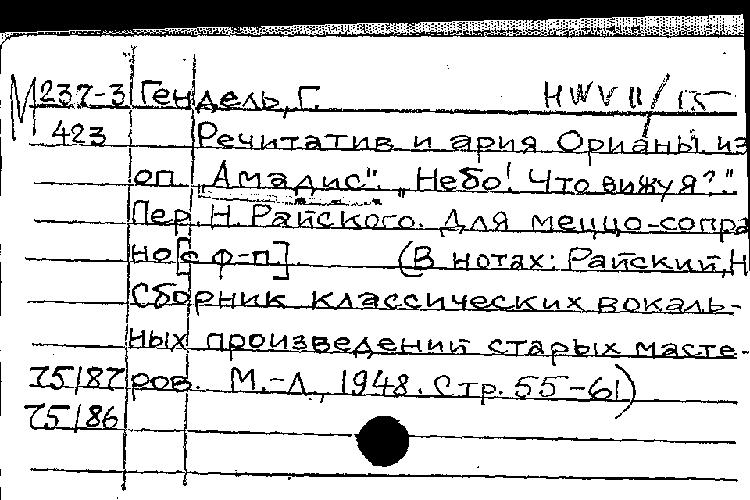 М 237-3 Гендель, Г. HWV 11/15
423 Речитатив и ария Орианы из
оп. „Амадис". „Небо! Что вижу я?".
Пер. Н. Райского. Для меццо-сопра
но [с ф-п]. (В нотах: Райский, Н
Сборник классических вокаль-
ных произведений старых масте-
75/87 ров. М.-Л., 1948. Стр. 55-61)
75/86